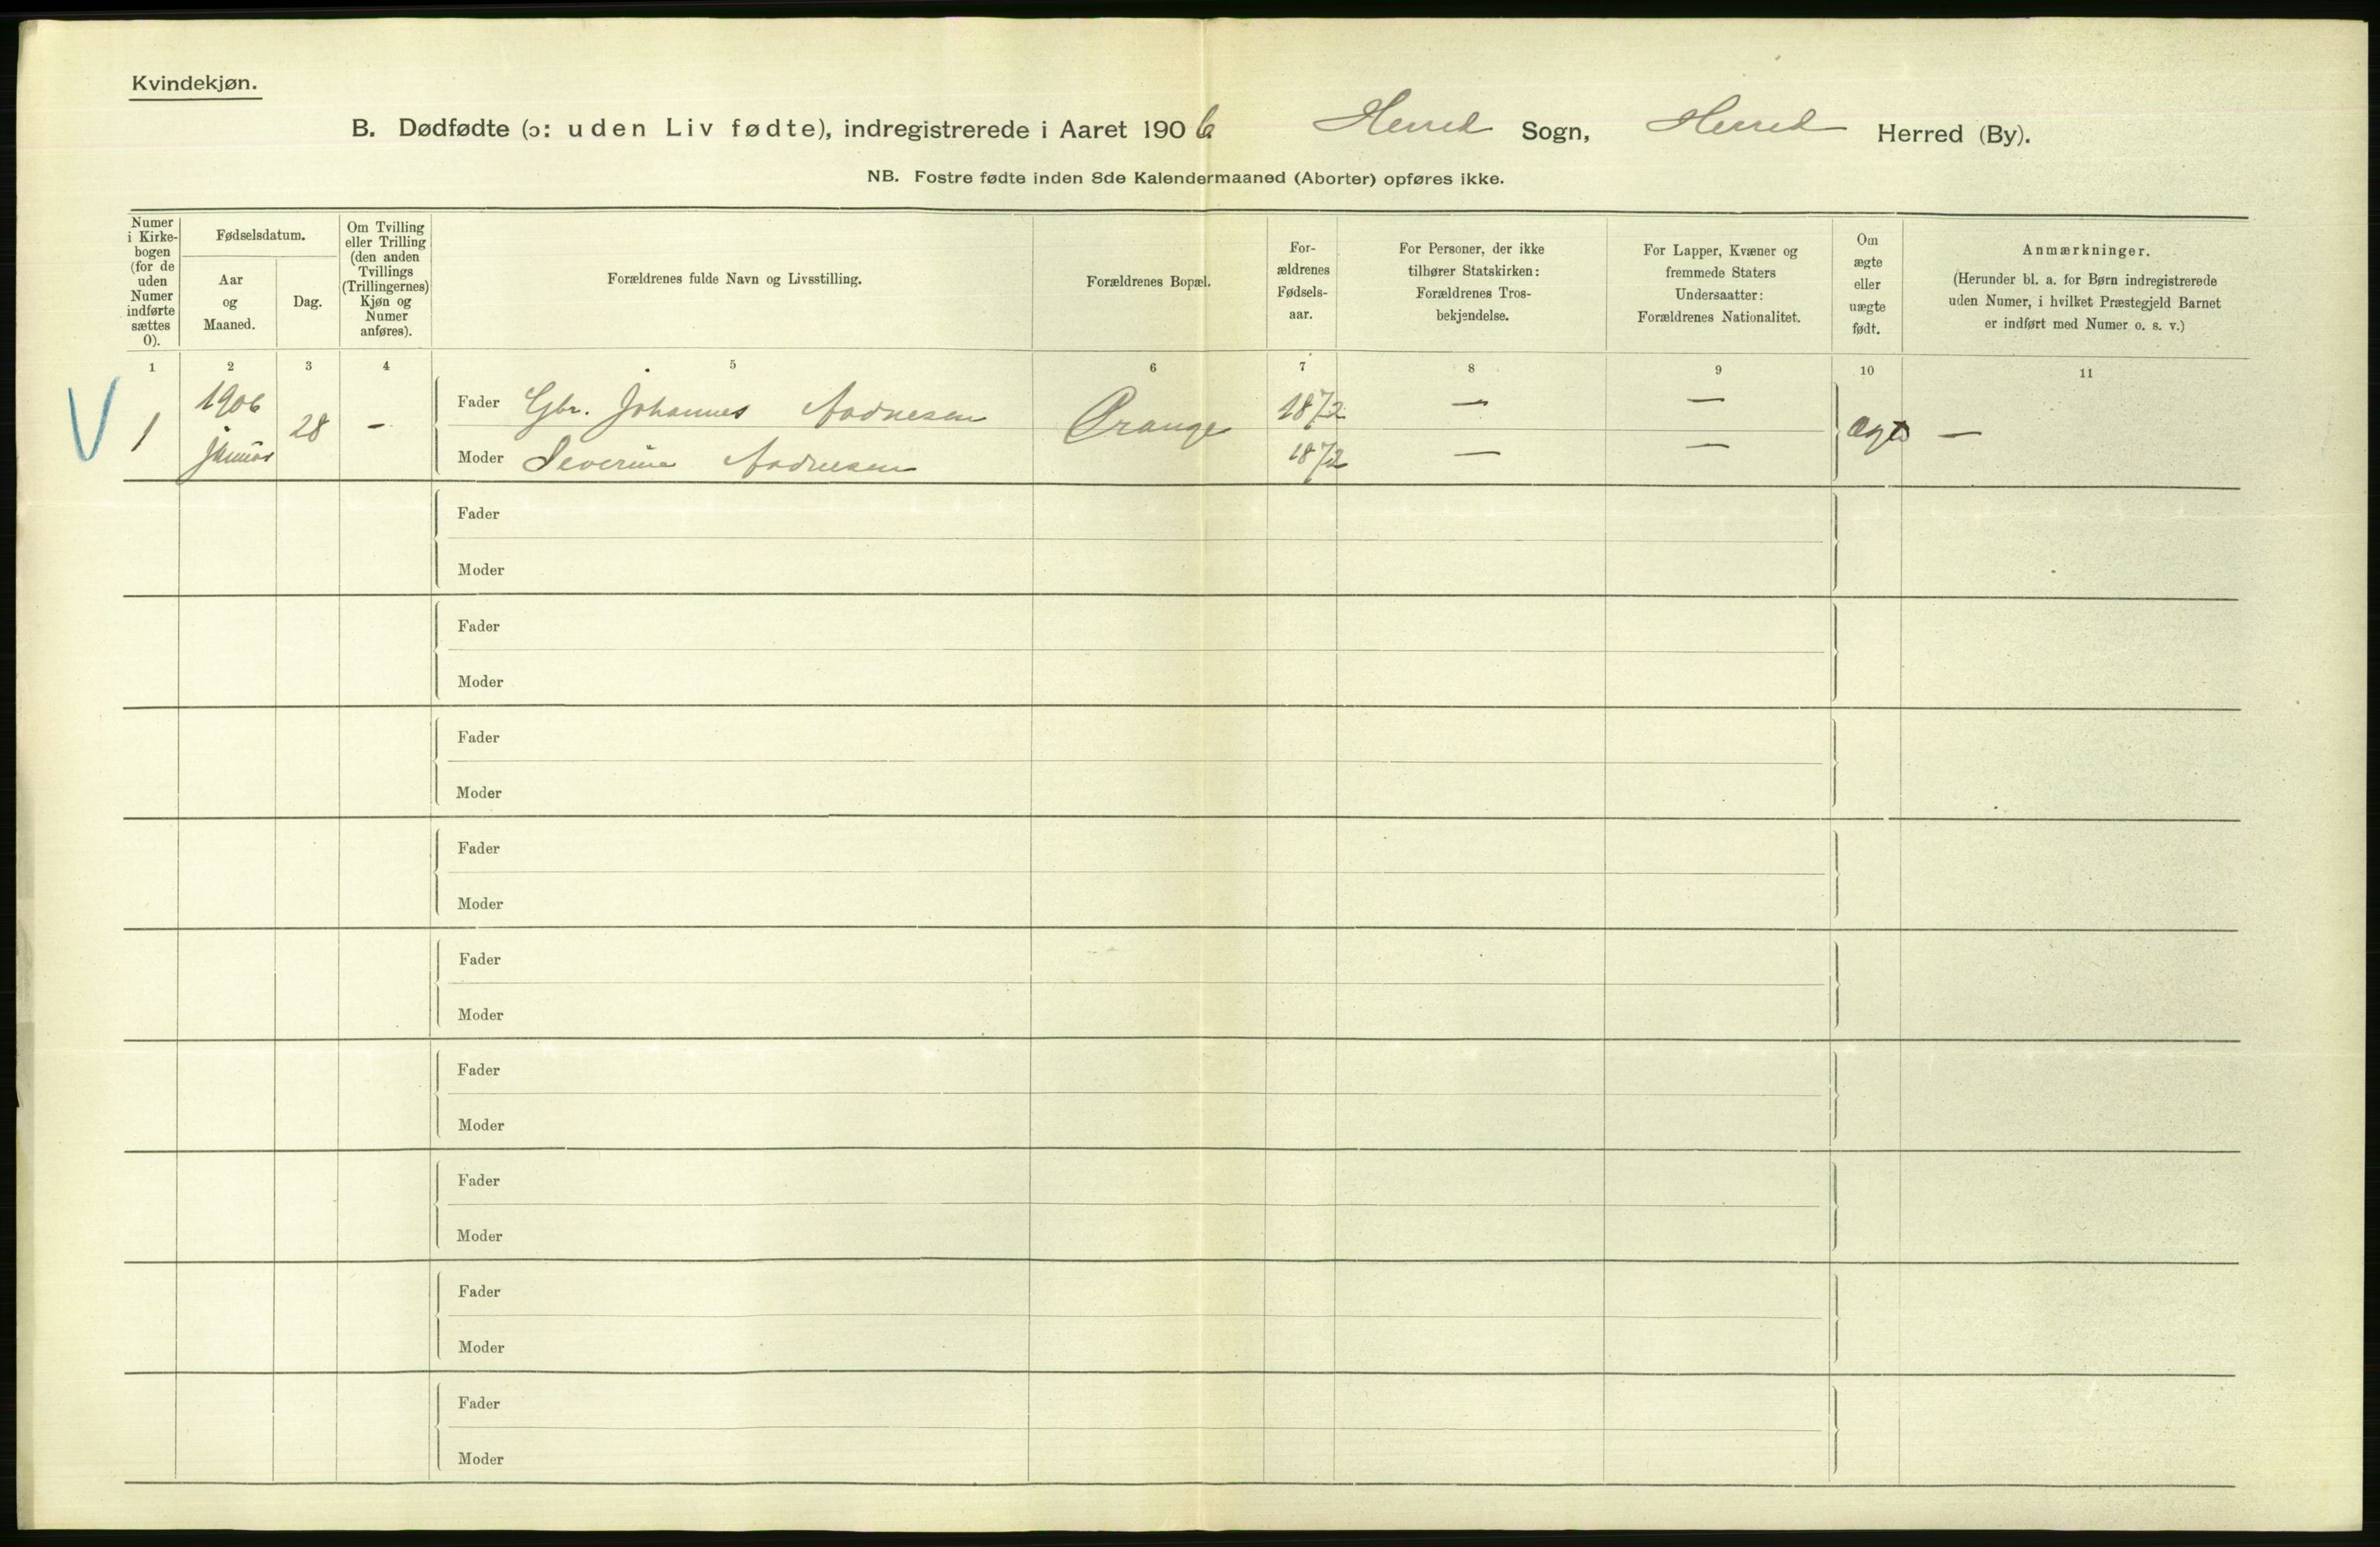 Kvindekjøn.
B. Dødfødte (ɔ: uden Liv fødte), indregistrerede i Aaret 1906 Herred Sogn, Herred Herred (By).
NB. Fostre fødte inden 8de Kalendermaaned (Aborter) opføres ikke.
Numer
i Kirke-
bogen
(for de
uden
Numer
indførte
sættes
0).
Fødselsdatum.
Aar
og
Maaned.
Dag.
Om Tvilling
eller Trilling
(den anden
Tvillings
(Trillingernes)
Kjøn og
Numer
anføres).
Forældrenes fulde Navn og Livsstilling.
Forældrenes Bopæl.
For-
ældrenes
Fødsels-
aar.
For Personer, der ikke
tilhører Statskirken:
Forældrenes Tros-
bekjendelse.
For Lapper, Kvæner og
fremmede Staters
Undersaatter:
Forældrenes Nationalitet.
Om
ægte
eller
uægte
født.
Anmærkninger.
(Herunder bl. a. for Børn indregistrerede
uden Numer, i hvilket Præstegjeld Barnet
er indført med Numer o. s. v.)
1 2 3 4 5 6 7 8 9 10 11
V 1 1906 Januar 28 -
Fader Gbr. Johannes Aadnesen Ørange 1872 — —
Moder Severine Aadnesen 1872 — — Ægte —
Fader
Moder
Fader
Moder
Fader
Moder
Fader
Moder
Fader
Moder
Fader
Moder
Fader
Moder
Fader
Moder
Fader
Moder